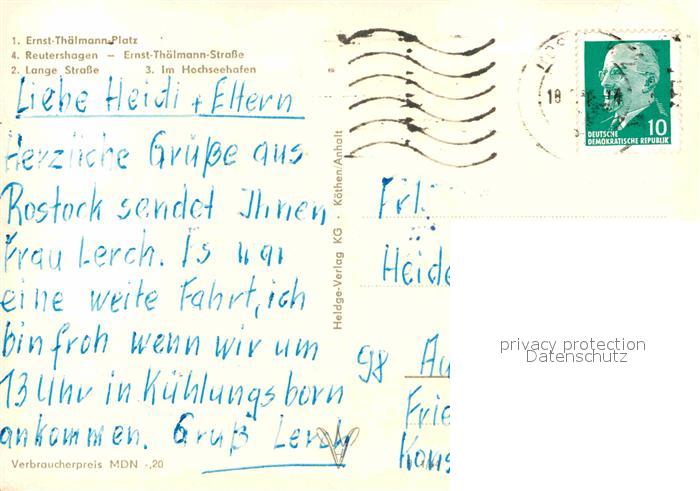 1. Ernst-Thälmann-Platz
4. Reutershagen – Ernst-Thälmann-Straße
2. Lange Straße 3. Im Hochseehafen
Liebe Heidi + Eltern
Herzliche Grüße aus
Rostock sendet Ihnen
Frau Lerch. Es war
eine weite Fahrt, ich
bin froh wenn wir um
13 Uhr in Kühlungsborn
ankommen. Gruß Lerch
Verbraucherpreis MDN -,20
Heldge-Verlag KG · Köthen/Anhalt
18
10
DEUTSCHE
DEMOKRATISCHE REPUBLIK
Frl.
Heide
98 Au
Frie
Kons
privacy protection
Datenschutz